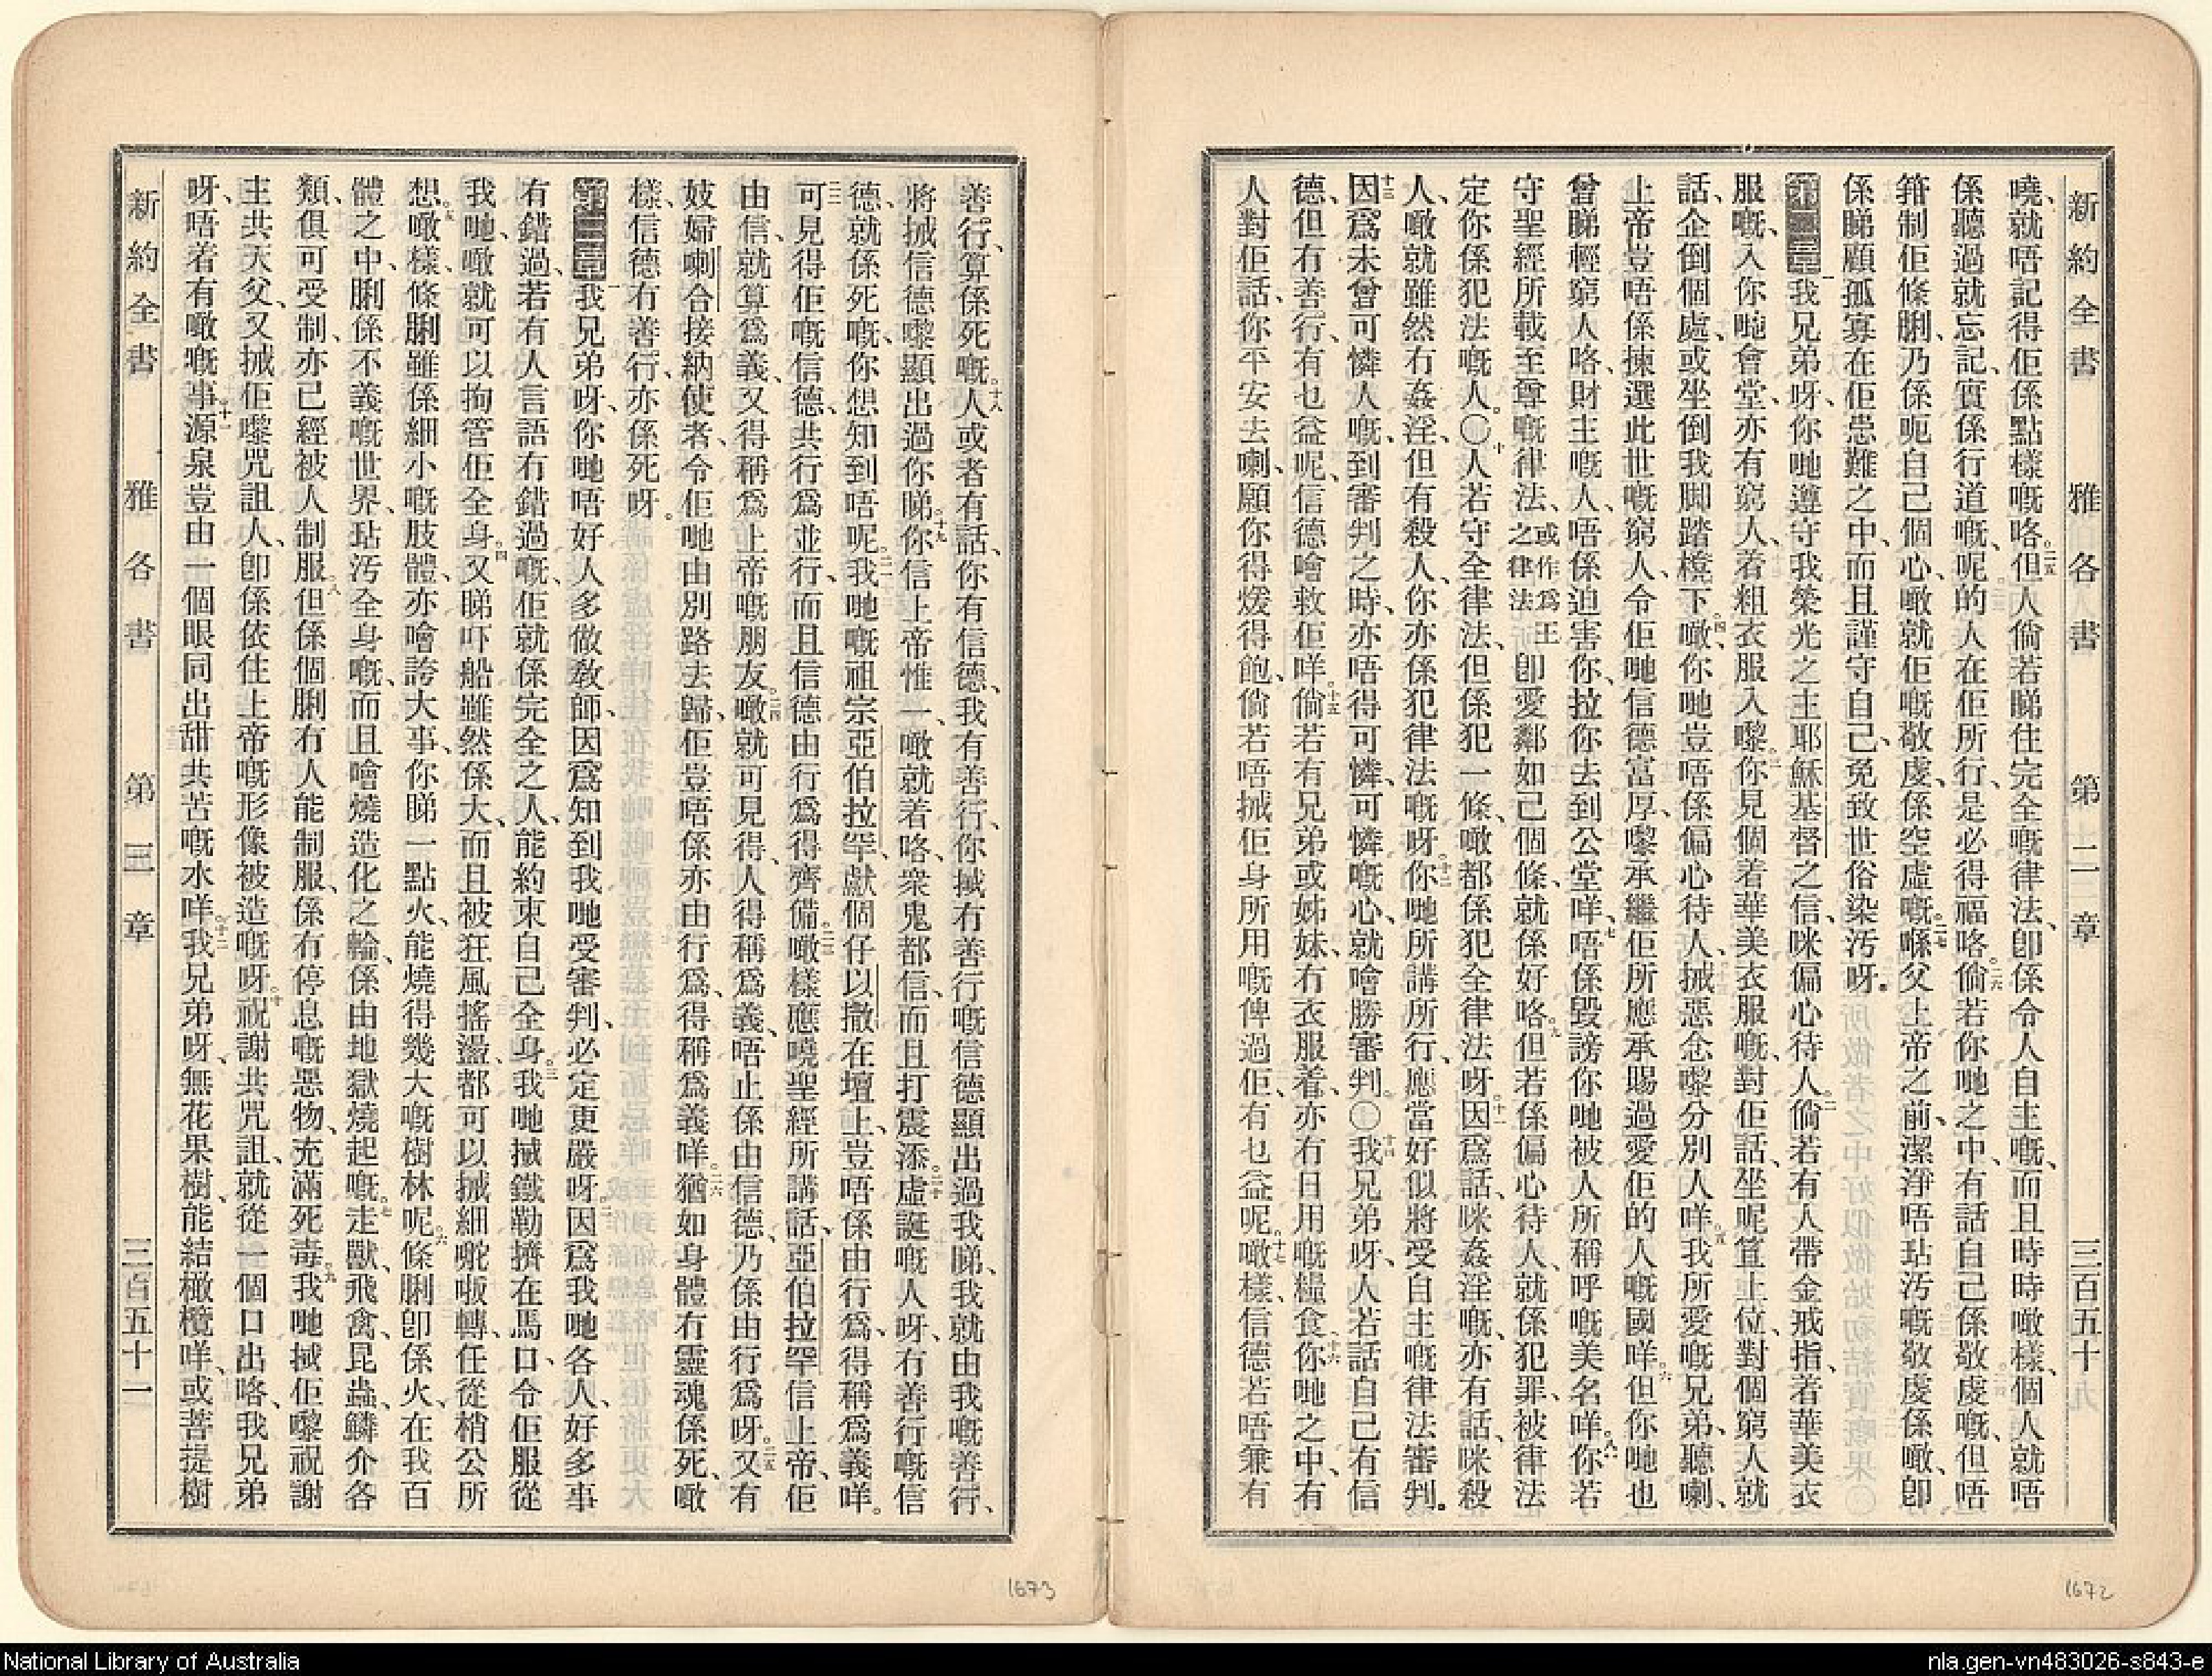 新約全書 雅各書 第二章 三百五十
曉、就唔記得佢係點樣嘅咯。二五但人倘若睇住完全嘅律法、卽係令人自主嘅、而且時時噉樣、個人就唔
係聽過就忘記、實係行道嘅呢的人在佢所行、是必得福咯。二六倘若你哋之中、有話自己係敬虔嘅、但唔
箝制佢條脷、乃係呃自己個心、噉就佢嘅敬虔、係空虛嘅。二七喺父上帝之前、潔淨唔玷汚嘅敬虔係噉、卽
係睇顧孤寡在佢患難之中、而且謹守自己、免致世俗染汚呀。
第二章 一我兄弟呀、你哋遵守我榮光之主耶穌基督之信、咪偏心待人。二倘若有人帶金戒指、着華美衣
服嘅、入你哋會堂、亦有窮人、着粗衣服入嚟。三你見個着華美衣服嘅、對佢話、坐呢笪上位、對個窮人就
話、企倒個處、或坐倒我脚踏櫈下。四噉、你哋豈唔係偏心待人、搣惡念嚟分別人咩。五我所愛嘅兄弟、聽喇、
上帝豈唔係揀選此世嘅窮人、令佢哋信德富厚、嚟承繼佢所應承賜過愛佢的人嘅國咩。六但你哋也
曾睇輕窮人咯、財主嘅人、唔係迫害你、拉你去到公堂咩。七唔係毀謗你哋被人所稱呼嘅美名咩。八你若
守聖經所載至尊嘅律法、或作爲王之律法卽愛鄰如己個條、就係好咯。九但若係偏心待人、就係犯罪、被律法
定你係犯法嘅人。〇十人若守全律法、但係犯一條、噉都係犯全律法呀。十一因爲話、咪姦淫嘅、亦有話、咪殺
人、噉就雖然冇姦淫、但有殺人、你亦係犯律法嘅呀。十二你哋所講所行、應當好似將受自主嘅律法審判。
十三因爲未曾可憐人嘅、到審判之時、亦唔得可憐、可憐嘅心、就噲勝審判。〇十四我兄弟呀、人若話自己有信
德、但冇善行、有乜益呢、信德噲救佢咩。十五倘若有兄弟或姊妹、冇衣服着、亦冇日用嘅糧食、十六你哋之中、有
人對佢話、你平安去喇、願你得煖得飽、倘若唔搣佢身所用嘅俾過佢、有乜益呢。十七噉樣、信德若唔兼有
善行、算係死嘅。十八人或者有話、你有信德、我有善行、你搣冇善行嘅信德顯出過我睇、我就由我嘅善行、
將搣信德嚟顯出過你睇。十九你信上帝惟一、噉就着咯、衆鬼都信、而且打震添。二十虛誕嘅人呀、冇善行嘅信
德、就係死嘅、你想知到唔呢。二一我哋嘅祖宗亞伯拉罕、獻個仔以撒在壇上、豈唔係由行爲、得稱爲義咩。
二二可見得佢嘅信德、共行爲並行、而且信德由行爲得齊備。二三噉樣應曉聖經所講話、亞伯拉罕信上帝、佢
由信、就算爲義、又得稱爲上帝嘅朋友。二四噉就可見得、人得稱爲義、唔止係由信德、乃係由行爲呀。二五又有
妓婦喇合接納使者、令佢哋由別路去歸、佢豈唔係亦由行爲、得稱爲義咩。二六猶如身體冇靈魂係死、噉
樣、信德冇善行、亦係死呀。
第三章 一我兄弟呀、你哋唔好人多做敎師、因爲知到我哋受審判、必定更嚴呀。二因爲我哋各人、好多事
有錯過、若有人言語冇錯過嘅、佢就係完全之人、能約束自己全身。三我哋搣鐵勒擠在馬口、令佢服從
我哋、噉就可以拘管佢全身。四又睇吓船雖然係大、而且被狂風搖盪、都可以搣細嘅𦪘轉、任從梢公所
想。五噉樣、條脷雖係細小嘅肢體、亦噲誇大事、你睇一點火、能燒得幾大嘅樹林呢。六條脷卽係火、在我百
體之中、脷係不義嘅世界、玷汚全身嘅、而且噲燒造化之輪、係由地獄燒起嘅。七走獸、飛禽、昆蟲、鱗介各
類、俱可受制、亦已經被人制服。八但係個脷冇人能制服、係冇停息嘅惡物、充滿死毒。九我哋搣佢嚟祝謝
主共天父、又搣佢嚟咒詛人、卽係依住上帝嘅形像被造嘅呀。十祝謝共咒詛、就從一個口出咯、我兄弟
呀、唔着有噉嘅事。十一源泉豈由一個眼同出甜共苦嘅水咩。十二我兄弟呀、無花果樹、能結橄欖咩、或菩提樹
新約全書 雅各書 第三章 三百五十一
1673
1672
National Library of Australia
nla.gen-vn483026-s843-e